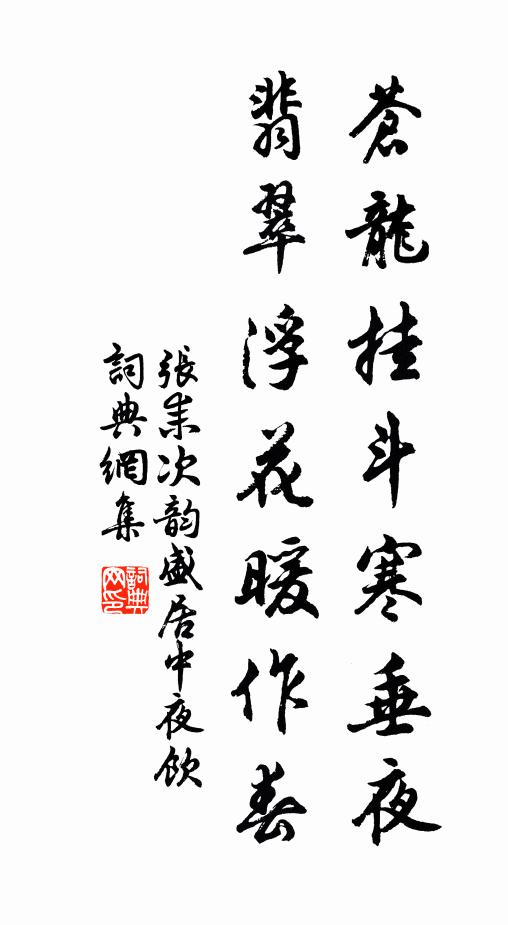 蒼龍挂斗寒垂夜
翡翠浮花暖作春
張耒次韵盛居中夜飲
詞典網集
詞典
网印